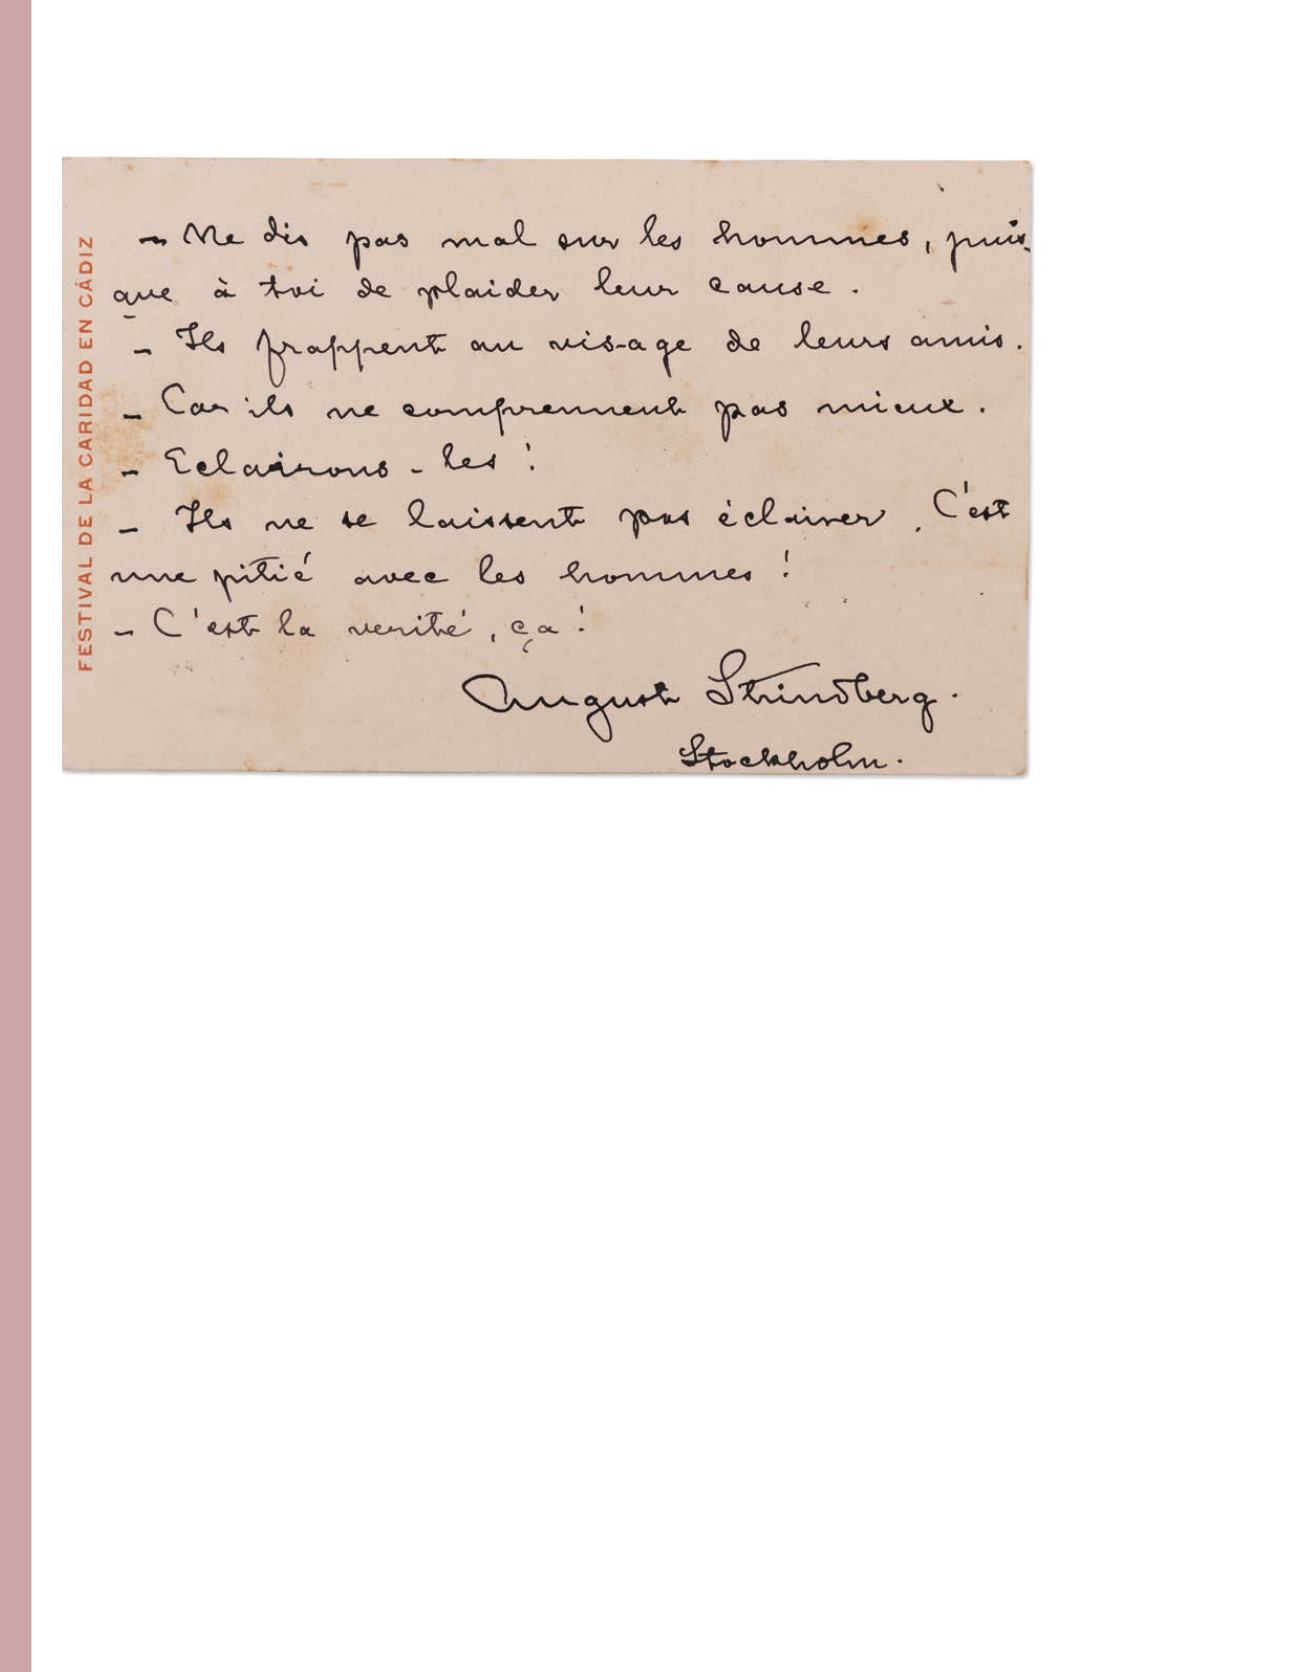 FESTIVAL DE LA CARIDAD EN CÁDIZ
– Ne dis pas mal sur les hommes, puis-
que à toi de plaider leur cause.
– Ils frappent au visage de leurs amis.
– Car ils ne comprennent pas mieux.
– Eclairons-les!
– Ils ne se laissent pas éclairer. C'est
une pitié avec les hommes!
– C'est la verité, ça!
August Strindberg.
Stockholm.